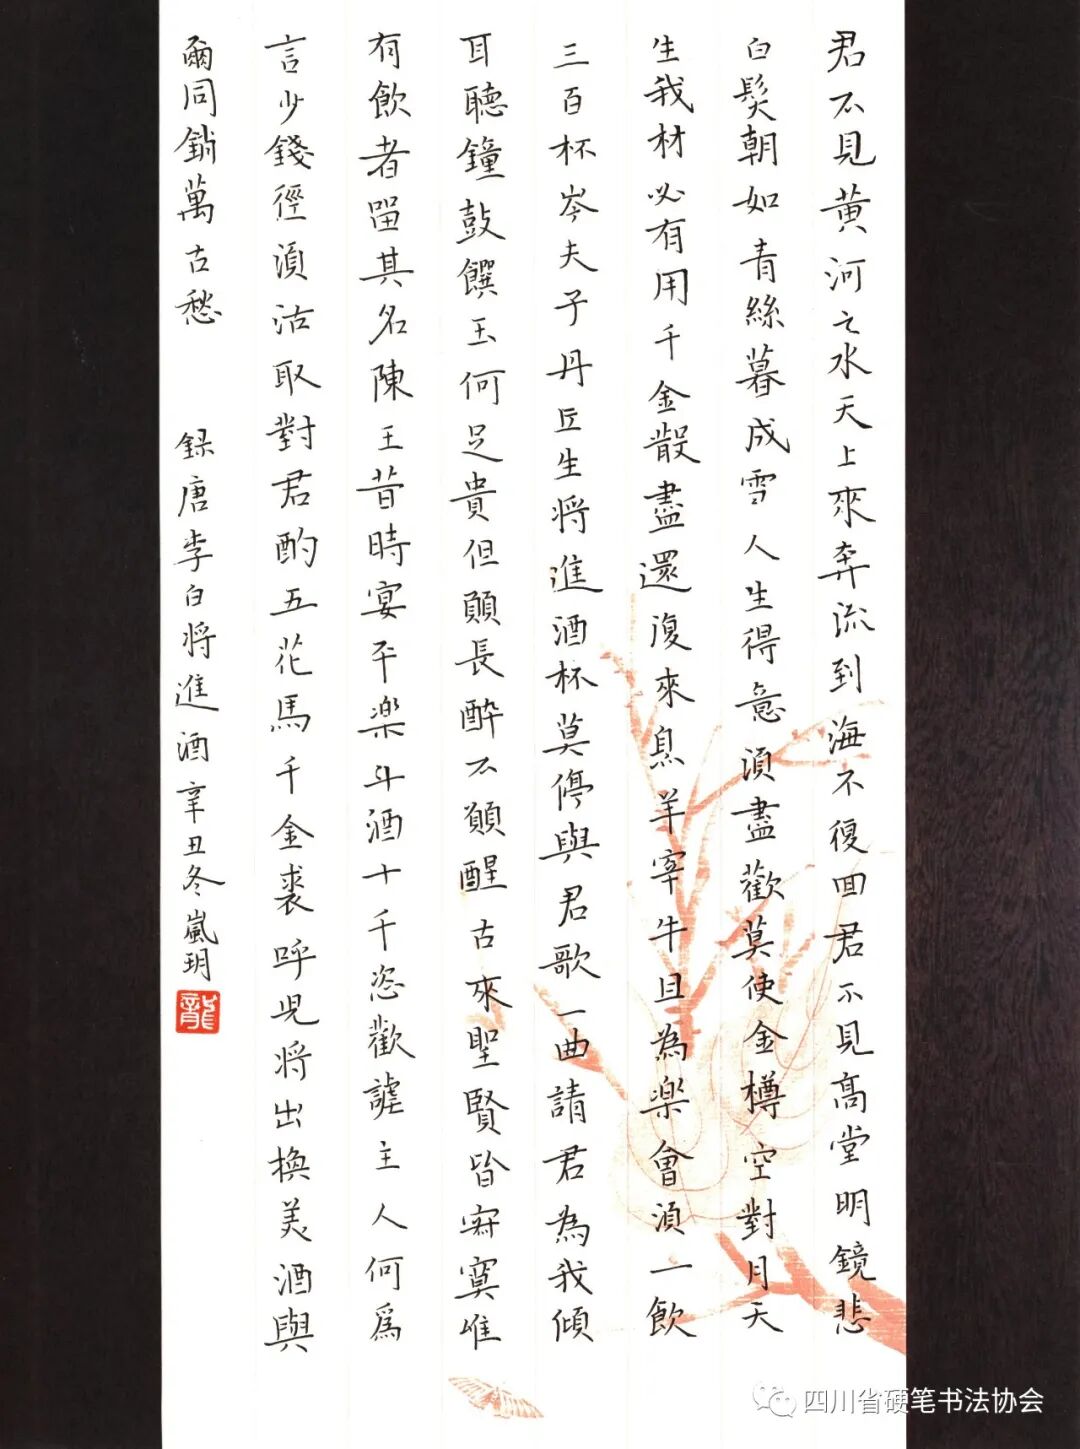 君不見黄河之水天上來奔流到海不復回君不見高堂明鏡悲
白髮朝如青絲暮成雪人生得意湏盡歡莫使金樽空對月天
生我材必有用千金散盡還復來烹羊宰牛且為樂會湏一飲
三百杯岑夫子丹丘生將進酒杯莫停與君歌一曲請君為我傾
耳聽鐘鼓饌玉何足貴但願長醉不願醒古來聖賢皆寂寞唯
有飲者留其名陳王昔時宴平樂斗酒十千恣歡謔主人何爲
言少錢徑湏沽取對君酌五花馬千金裘呼兒將出換美酒與
爾同銷萬古愁
錄唐李白將進酒辛丑冬嵐玥
龍
四川省硬笔书法协会